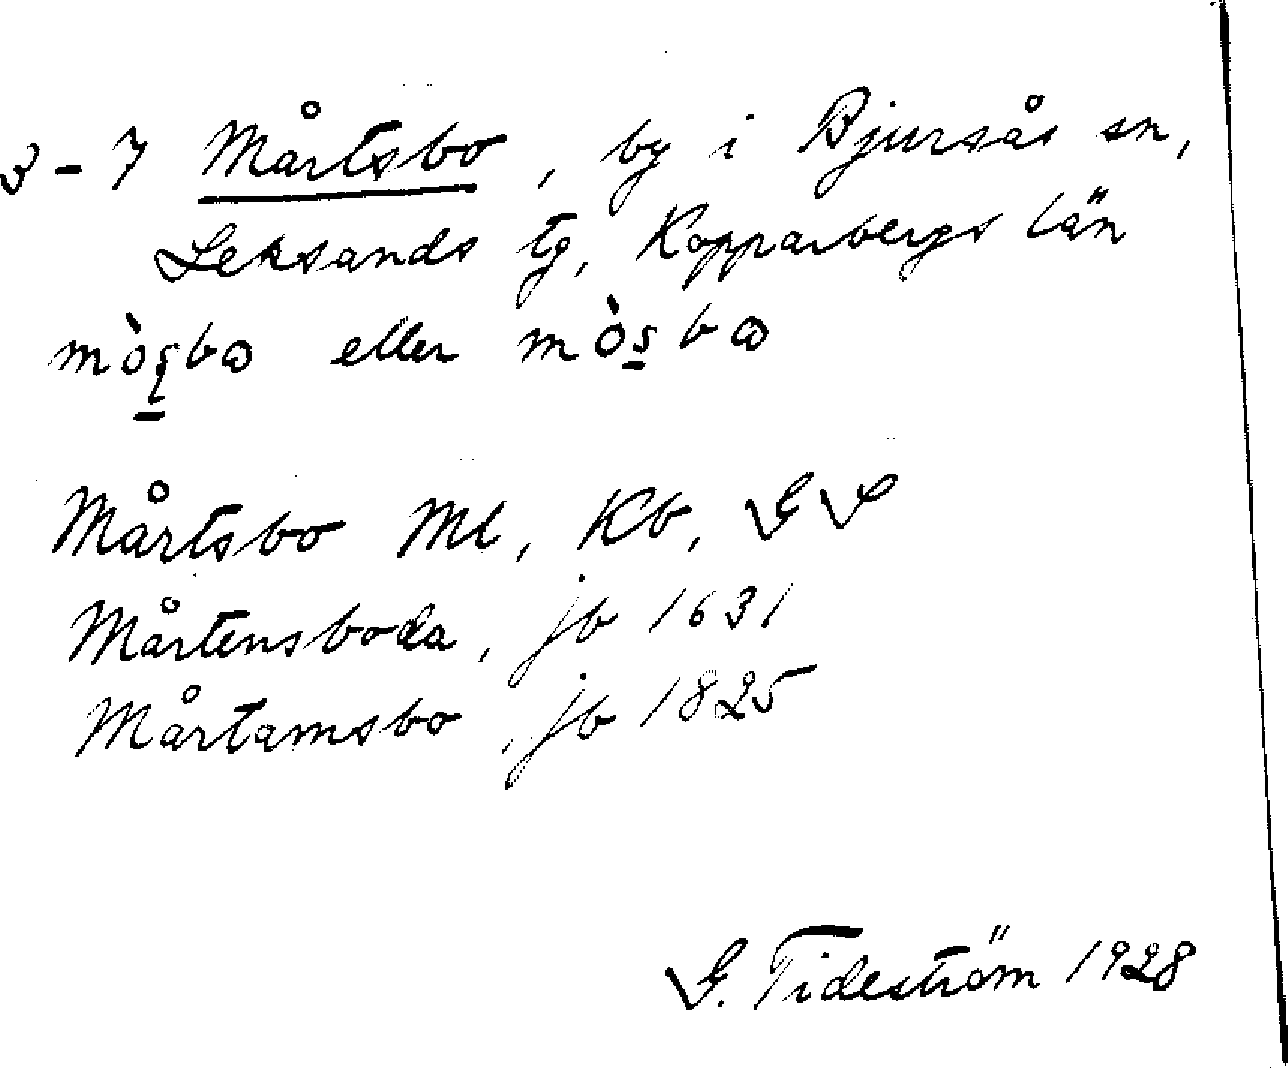 3-7 Mårtsbo, by i Bjursås sn,
Leksands tg, Kopparbergs län
mòʂbɷ eller mòs̠bɷ
Mårtsbo Ml, Kb, GS
Mårtensboda, jb 1631
Mårtamsbo, jb 1825
G. Tideström 1928